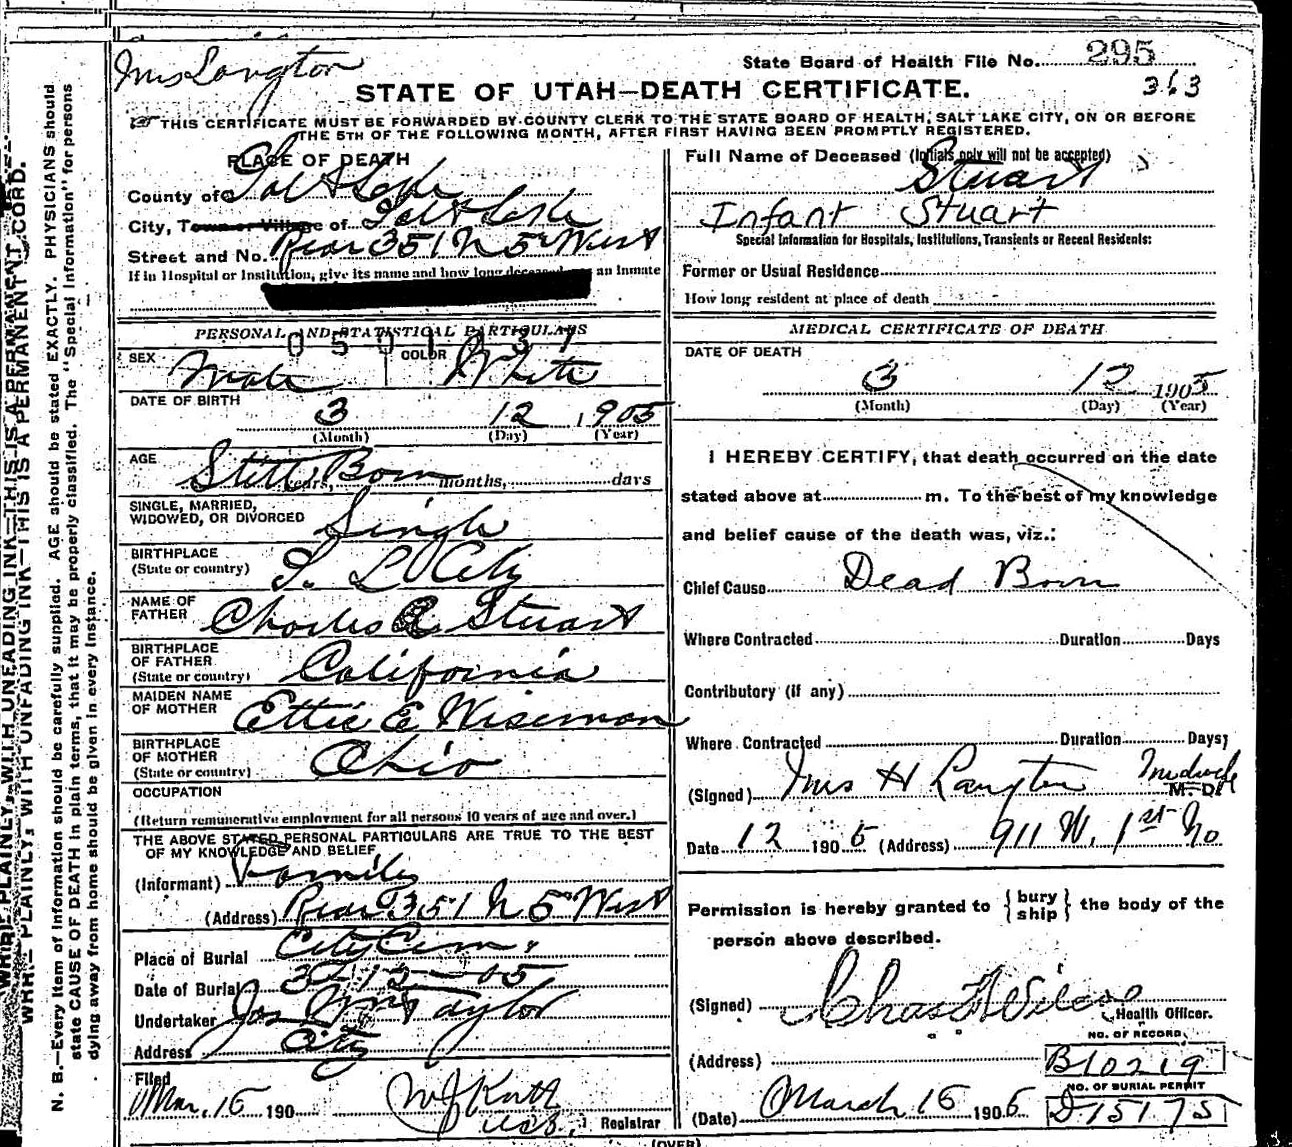 Mrs Langton
State Board of Health File No. 295
363
STATE OF UTAH—DEATH CERTIFICATE.
THIS CERTIFICATE MUST BE FORWARDED BY COUNTY CLERK TO THE STATE BOARD OF HEALTH, SALT LAKE CITY, ON OR BEFORE
THE 5TH OF THE FOLLOWING MONTH, AFTER FIRST HAVING BEEN PROMPTLY REGISTERED.
PLACE OF DEATH
County of Salt Lake
City, Town or Village of Salt Lake
Street and No. Rear 351 N 5 West
If in Hospital or Institution, give its name and how long deceased was an inmate
PERSONAL AND STATISTICAL PARTICULARS
SEX Male COLOR White
DATE OF BIRTH
3 12 1905
(Month) (Day) (Year)
AGE Still Born years, months, days
SINGLE, MARRIED,
WIDOWED, OR DIVORCED Single
BIRTHPLACE
(State or country) S. L City
NAME OF
FATHER Charles A Stuart
BIRTHPLACE
OF FATHER
(State or country) California
MAIDEN NAME
OF MOTHER Ettie E Wiseman
BIRTHPLACE
OF MOTHER
(State or country) Ohio
OCCUPATION
(Return remunerative employment for all persons 10 years of age and over.)
THE ABOVE STATED PERSONAL PARTICULARS ARE TRUE TO THE BEST
OF MY KNOWLEDGE AND BELIEF
(Informant) Family
(Address) Rear 351 N 5 West
Place of Burial City Cem.
Date of Burial 3-12-05
Undertaker Jos Wm Taylor
Address City
Filed
Mar. 16 190
Registrar
Full Name of Deceased (Initials only will not be accepted)
Stuart
Infant Stuart
Special Information for Hospitals, Institutions, Transients or Recent Residents:
Former or Usual Residence
How long resident at place of death
MEDICAL CERTIFICATE OF DEATH
DATE OF DEATH
3 12 1905
(Month) (Day) (Year)
I HEREBY CERTIFY, that death occurred on the date
stated above at m. To the best of my knowledge
and belief cause of the death was, viz.:
Chief Cause Dead Born
Where Contracted Duration Days
Contributory (if any)
Where Contracted Duration Days
(Signed) Mrs H Langton Midwife M. D.
Date 12 1905 (Address) 911 W. 1st No
Permission is hereby granted to { bury ship } the body of the
person above described.
(Signed) Chas Wilcox
Health Officer.
NO. OF RECORD
(Address) B10219
NO. OF BURIAL PERMIT
(Date) March 16 1905 D15175
(OVER)
WRITE PLAINLY, WITH UNFADING INK—THIS IS A PERMANENT RECORD.
N. B.—Every item of information should be carefully supplied. AGE should be stated EXACTLY. PHYSICIANS should
state CAUSE OF DEATH in plain terms, that it may be properly classified. The "Special Information" for persons
dying away from home should be given in every instance.